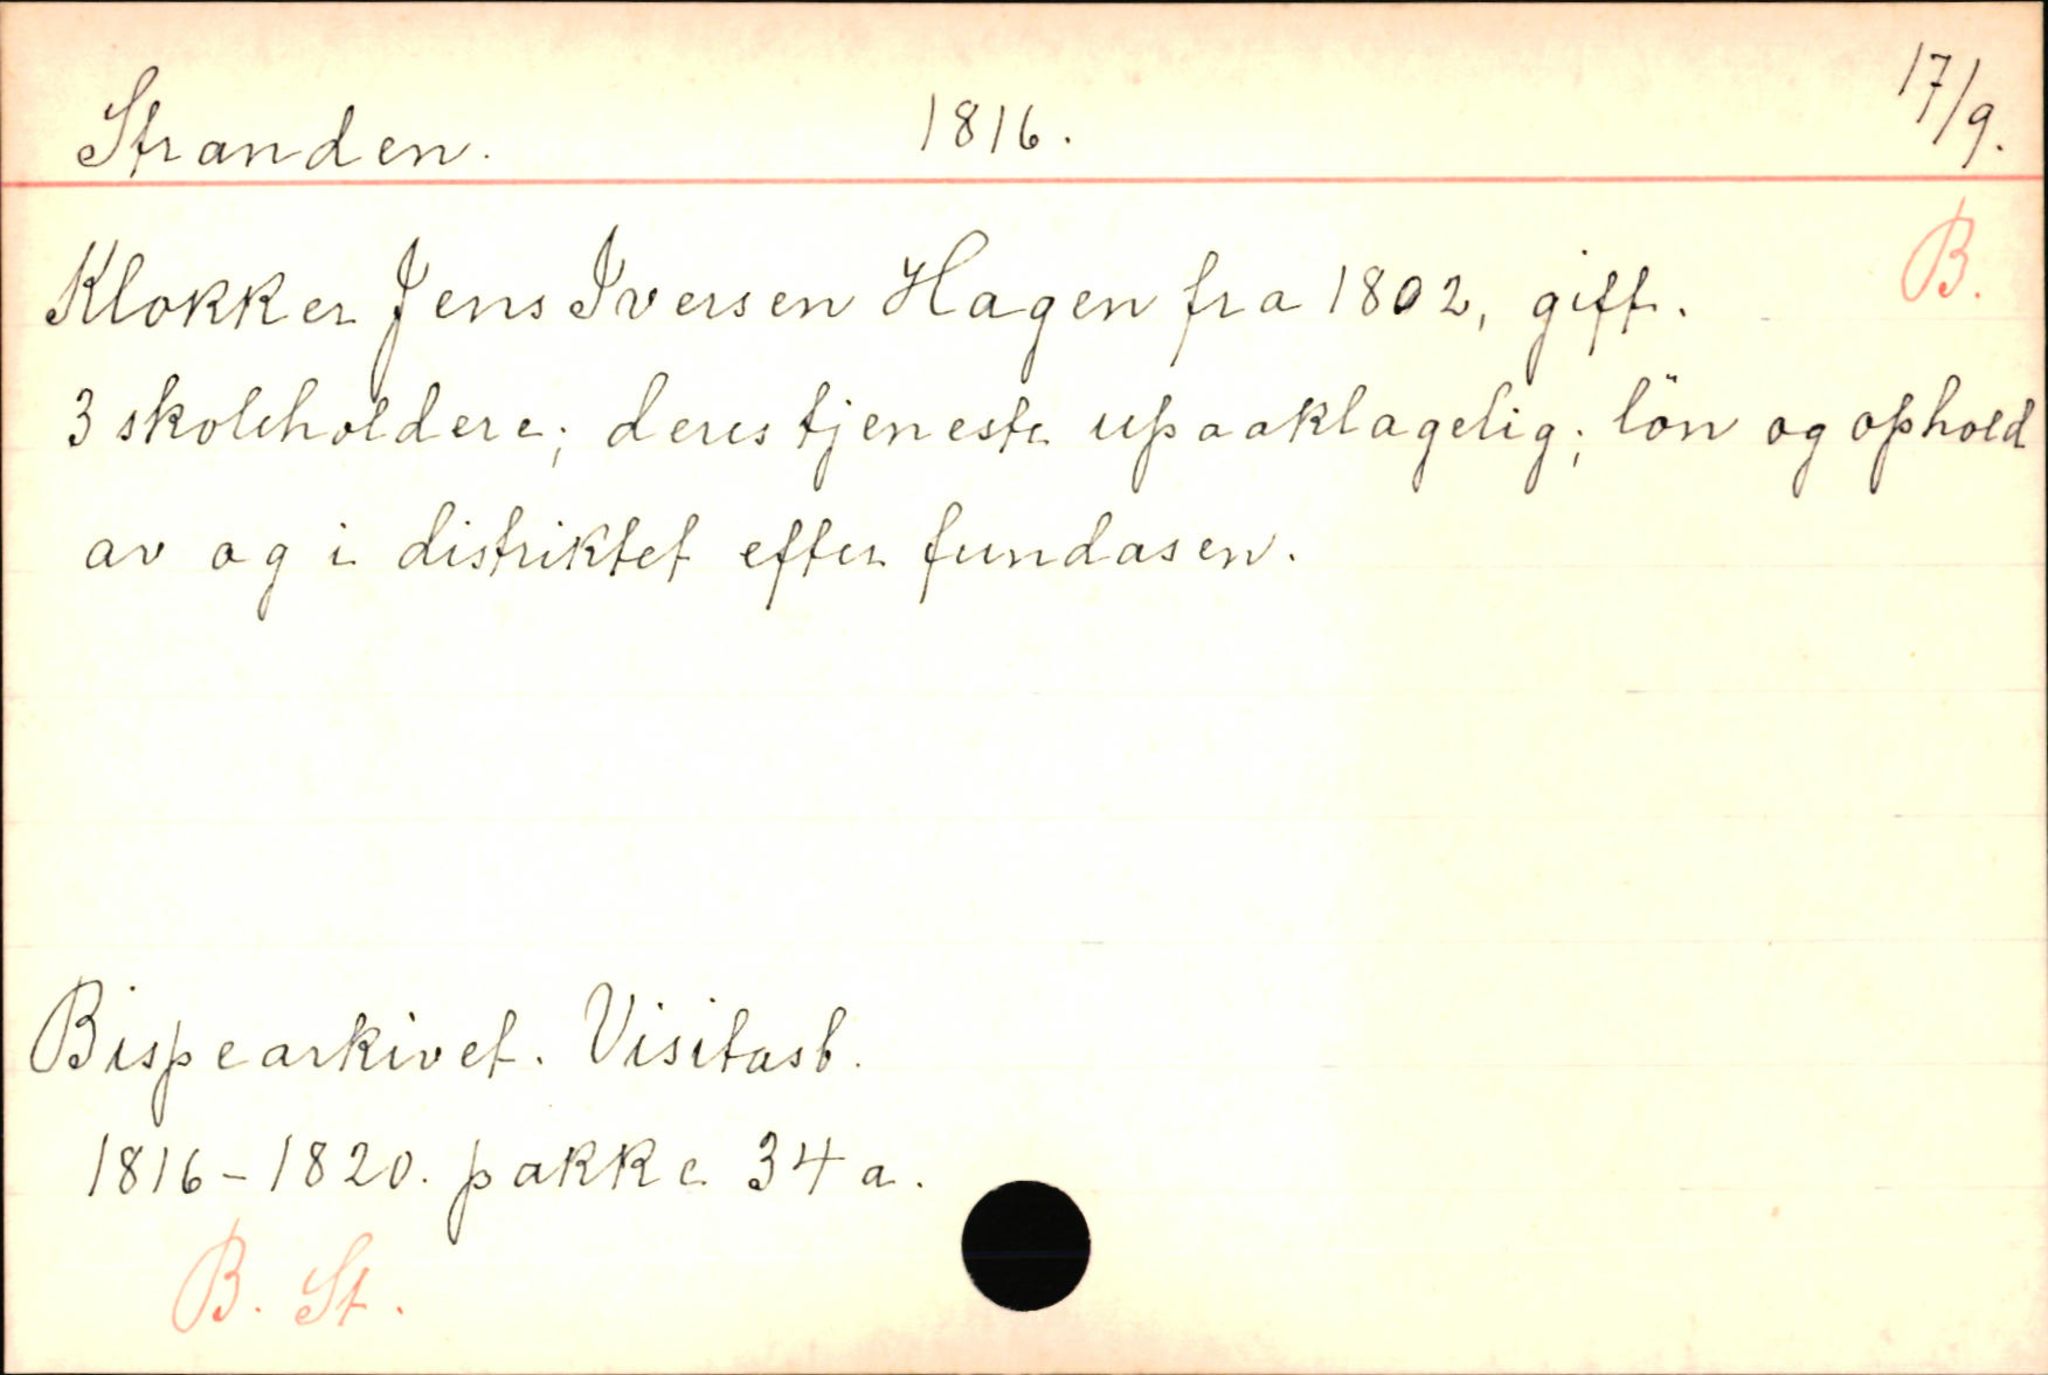 Stranden. 1816. 17/9.
B.
Klokker Jens Iversen Hagen fra 1802, gift.
3 skoleholdere; deres tjeneste upaaklagelig; lön og ophold
av og i distriktet efter fundasen.
Bispearkivet. Visitasb.
1816-1820. pakke 34a.
B. St.